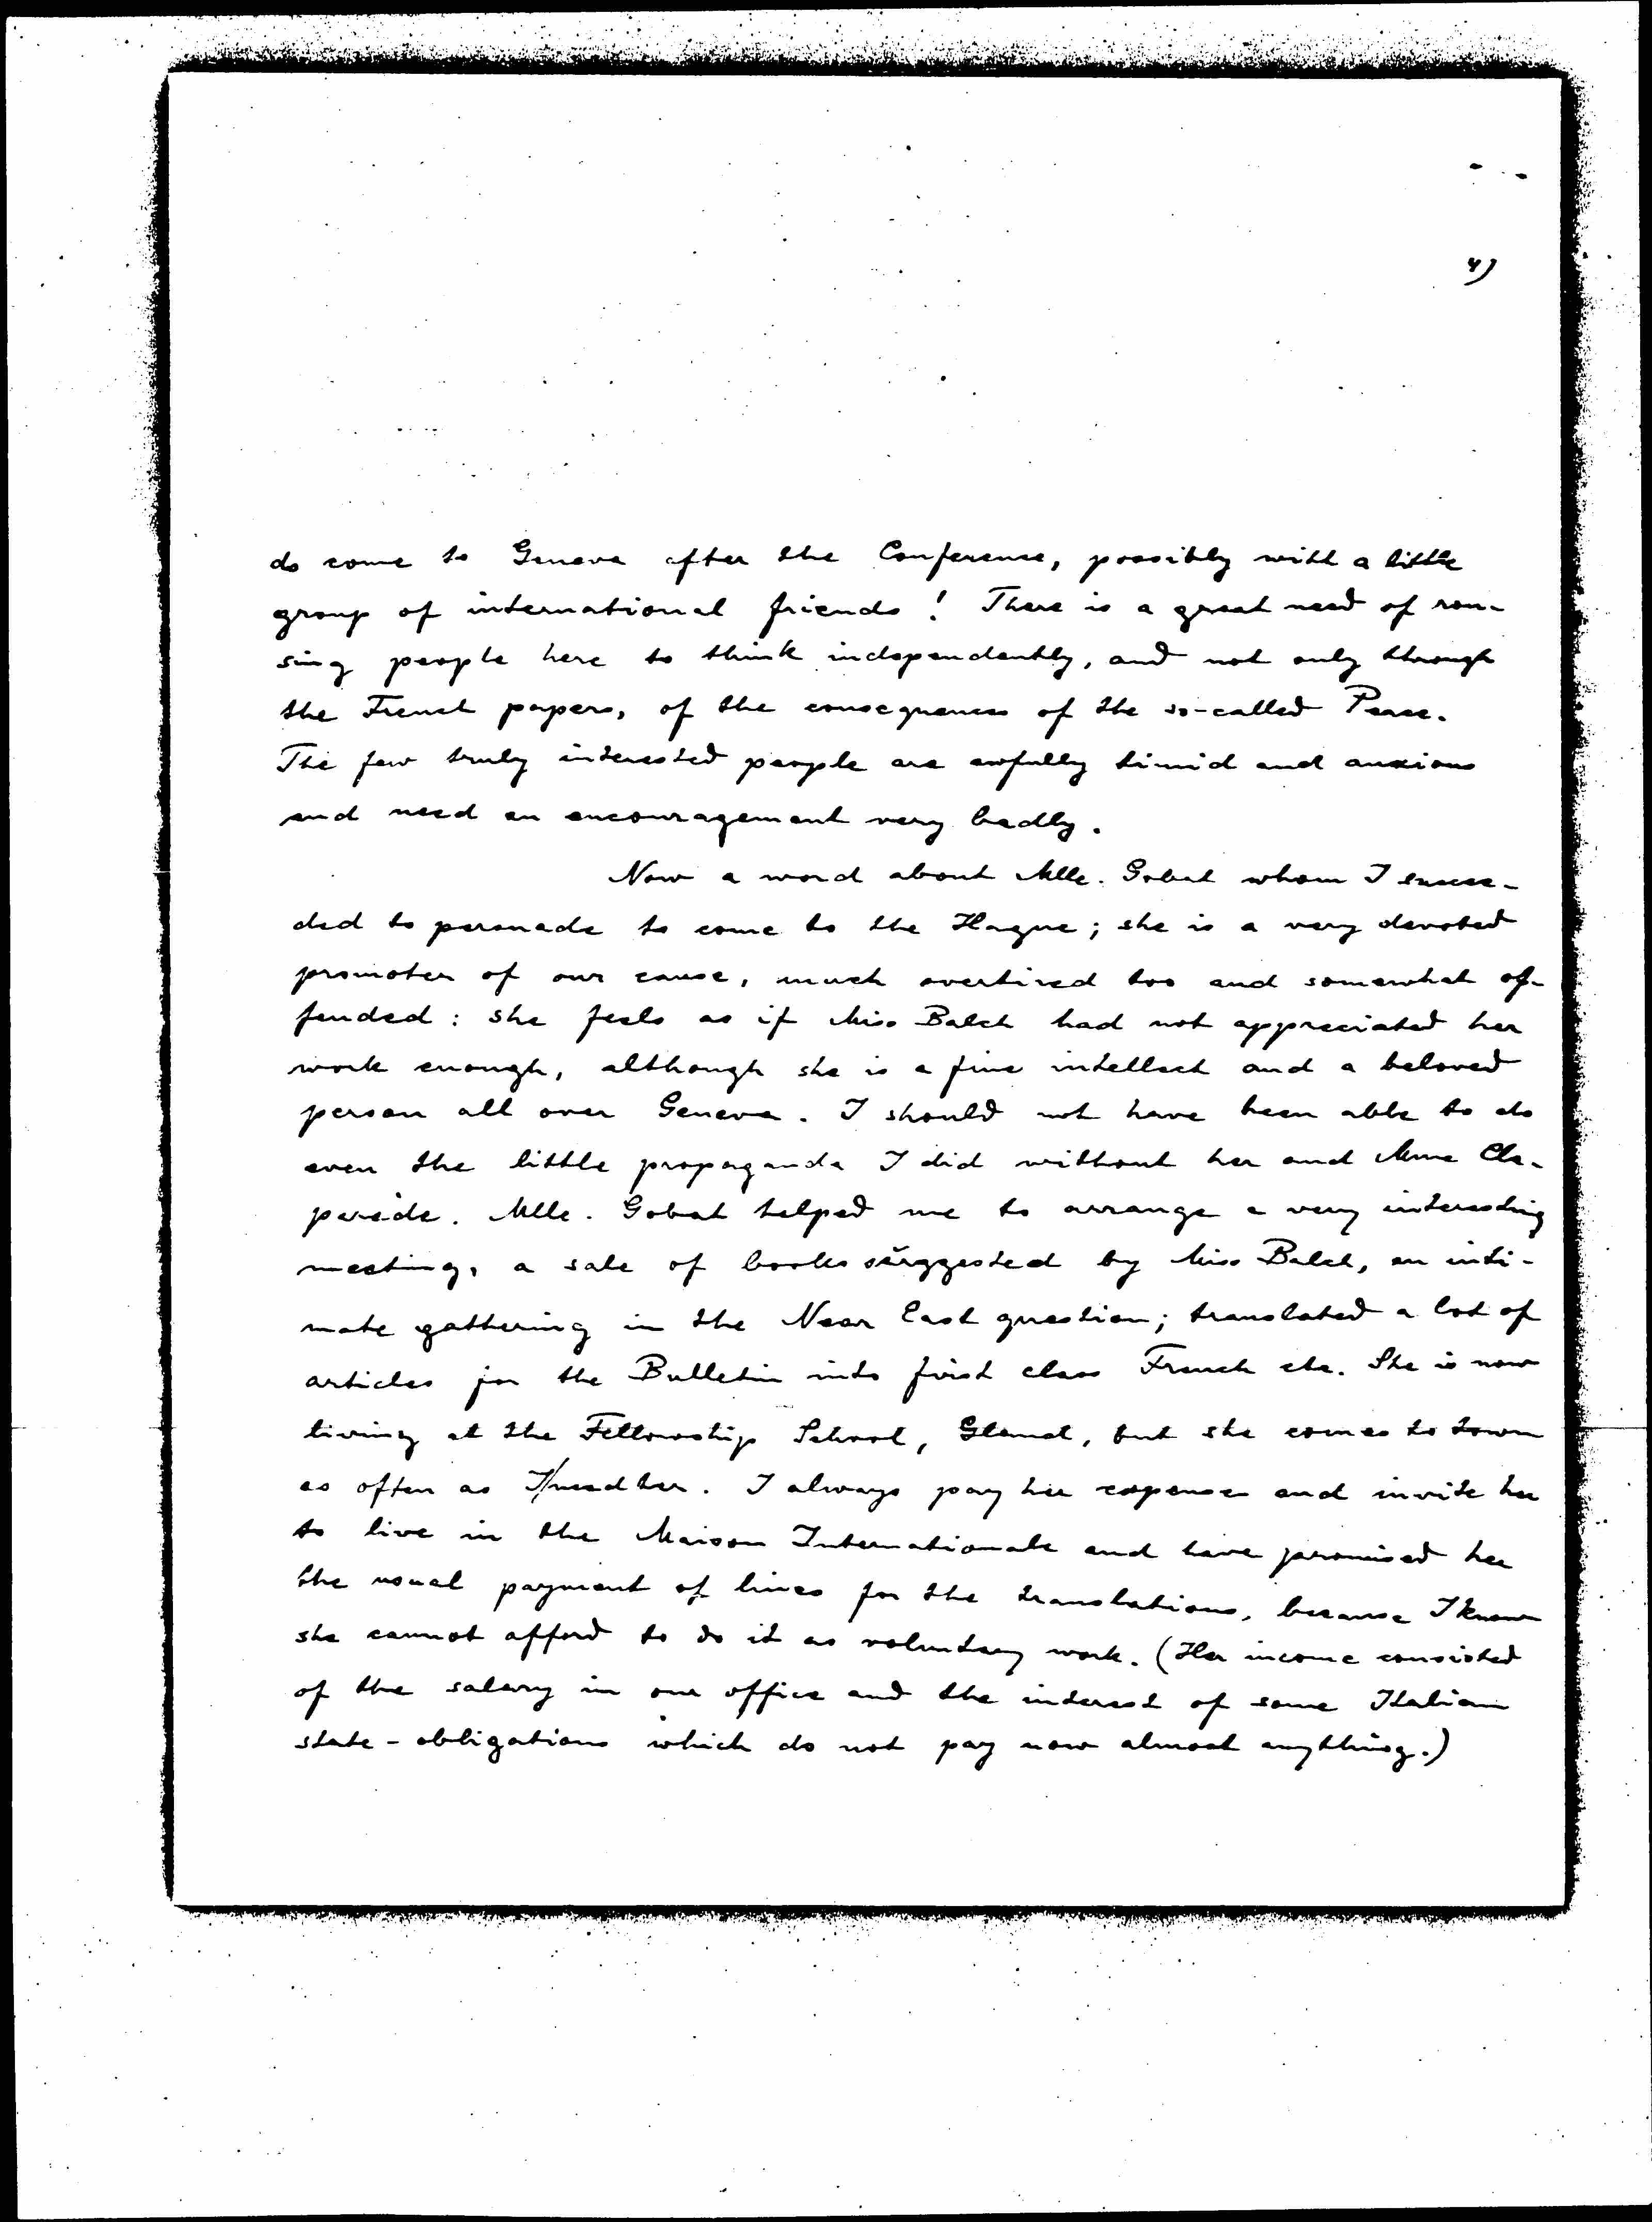 4)
do come to Geneva after the Conference, possibly with a little
group of international friends! There is a great need of rou-
sing people here to think independently, and not only through
the French papers, of the consequences of the so-called Peace.
The few truly interested people are awfully timid and anxious
and need an encouragement very badly.
Now a word about Mlle. Gobat whom I succee-
ded to persuade to come to the Hague; she is a very devoted
promoter of our cause, much overtired too and somewhat of-
fended: she feels as if Miss Balch had not appreciated her
work enough, although she is a fine intellect and a beloved
person all over Geneva. I should not have been able to do
even the little propaganda I did without her and Mme Cla-
parède. Mlle. Gobat helped me to arrange a very interesting
meeting, a sale of books suggested by Miss Balch, an inti-
mate gathering in the Near East question; translated a lot of
articles for the Bulletin into first class French etc. She is now
living at the Fellowship School, Gland, but she comes to town
as often as I/need her. I always pay her expenses and invite her
to live in the Maison Internationale and have promised her
the usual payment of lines for the translations, because I know
she cannot afford to do it as voluntary work. (Her income consisted
of the salary in our office and the interest of some Italian
state-obligations which do not pay now almost anything.)